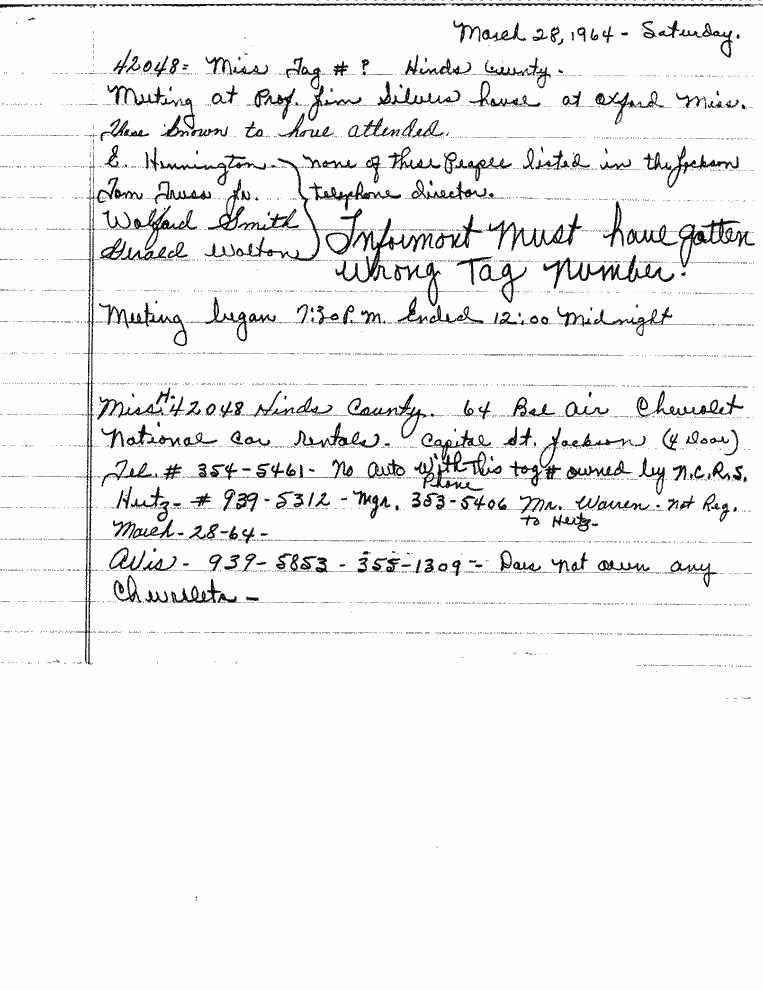 March 28, 1964 - Saturday.
42048 = Miss Tag # ? Hinds County.
Meeting at Prof. Jim Silvers house at Oxford Miss.
These known to have attended.
E. Hennington. none of these people listed in the Jackson
Tom Truss Jr. telephone director.
Walford Smith
Gerald Walton
Informant must have gotten
wrong Tag number.
Meeting began 7:30 P.M. Ended 12:00 Midnight
Miss. H-42048 Hinds County. 64 Bel air Chevrolet
National Car rentals. Capital St. Jackson (4 door)
Tel. # 354-5461 - No auto with this tag # owned by N.C.R.S.
Phone
Hertz - # 939-5312 - Mgr. 353-5406 Mr. Warren - not Reg.
to Hertz -
March - 28-64 -
Avis - 939-5853 - 355-1309 - Does not own any
Chevrolets -